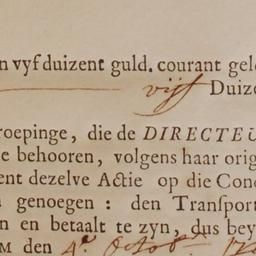 n vyf duizent guld. courant geld
vijf Duize
roepinge, die de DIRECTEU
e behooren, volgens haar orig
ent dezelve Actie op die Cond
genoegen: den Tranſport
n en betaalt te zyn, dus bey
M den 4.e Octob.r